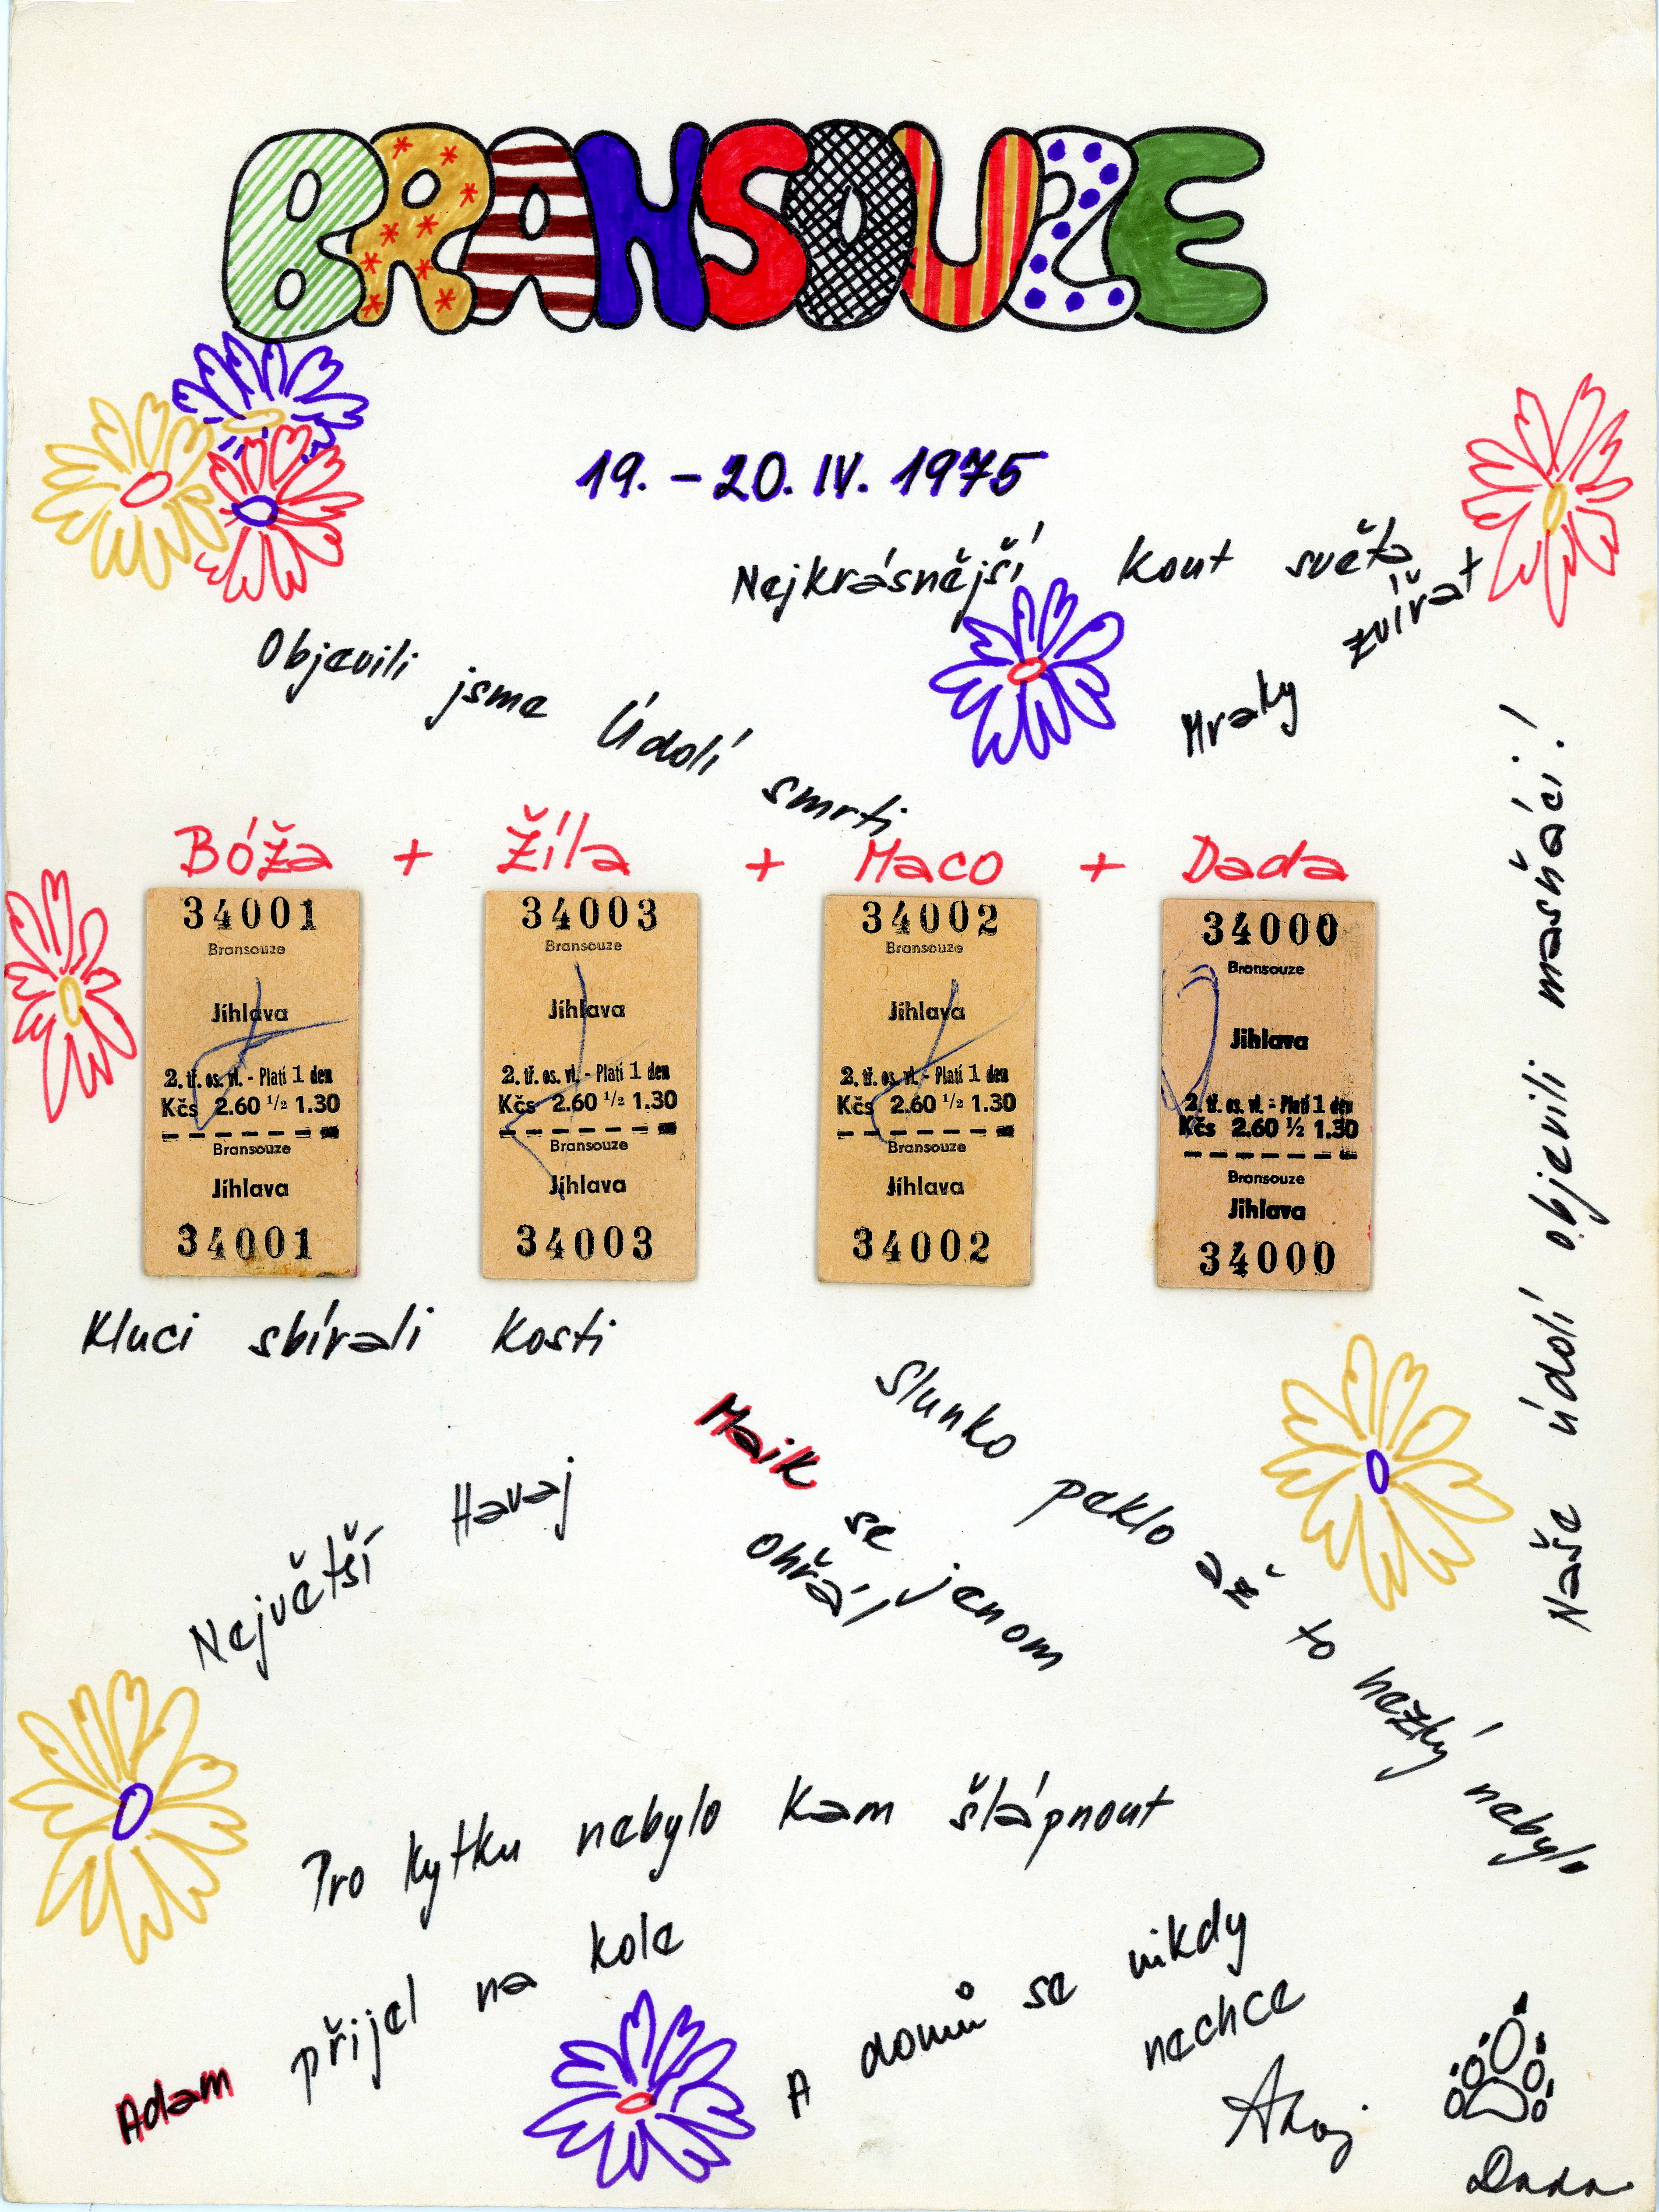 BRANSOUZE
19. - 20. IV. 1975
Nejkrásnější kout světa
Objevili jsme Údolí smrti
Hraky zvířat
Bóža + Žíla + Maco + Dada
34001
Bransouze
Jihlava
2. tř. os. vl. - Platí 1 den
Kčs 2.60 1/2 1.30
Bransouze
Jihlava
34001
34003
Bransouze
Jihlava
2. tř. os. vl. - Platí 1 den
Kčs 2.60 1/2 1.30
Bransouze
Jihlava
34003
34002
Bransouze
Jihlava
2. tř. os. vl. - Platí 1 den
Kčs 2.60 1/2 1.30
Bransouze
Jihlava
34002
34000
Bransouze
Jihlava
2. tř. os. vl. - Platí 1 den
Kčs 2.60 1/2 1.30
Bransouze
Jihlava
34000
Naše údolí objevili masňáci!
Kluci sbírali kosti
Slunko peklo až to hezký nebylo
Maik se jenom
ohřál
Největší Havaj
Pro kytku nebylo kam šlápnout
Adam přijel na kole
A domů se nikdy
nechce
Ahoj
Dada